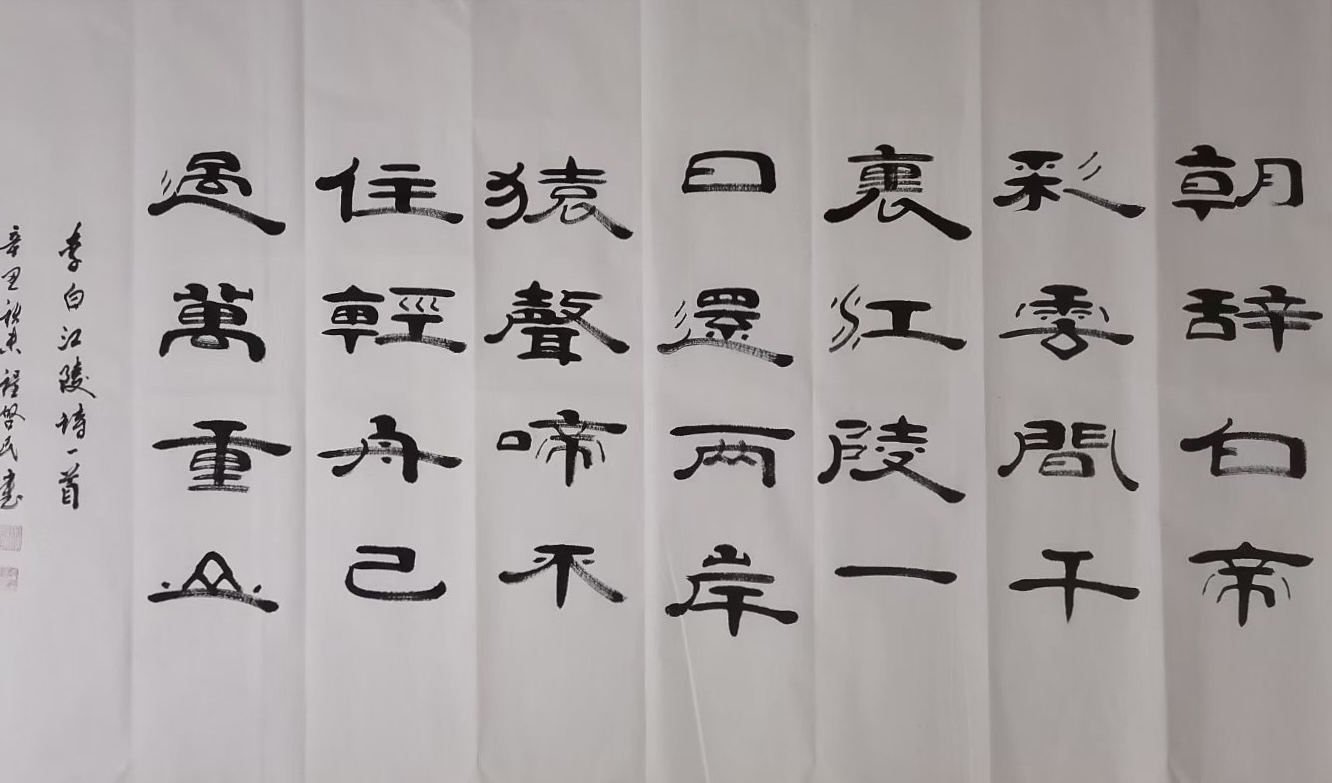 朝辞白帝
彩雲間千
裏江陵一
日還兩岸
猿聲啼不
住輕舟已
過萬重山
李白江陵詩一首
辛丑秋月程啓民書